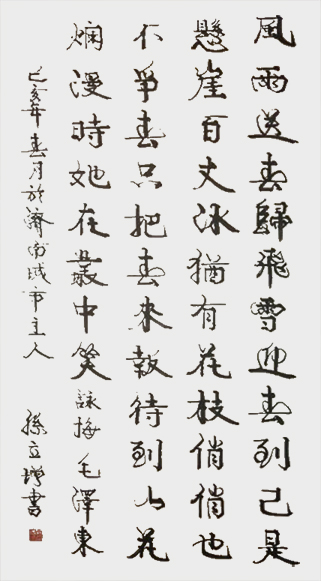 風雨送春歸飛雪迎春到已是
懸崖百丈冰猶有花枝俏俏也
不爭春只把春來報待到山花
爛漫時她在叢中笑 詠梅 毛澤東
己亥年春月於濟南城市主人
孫立增書